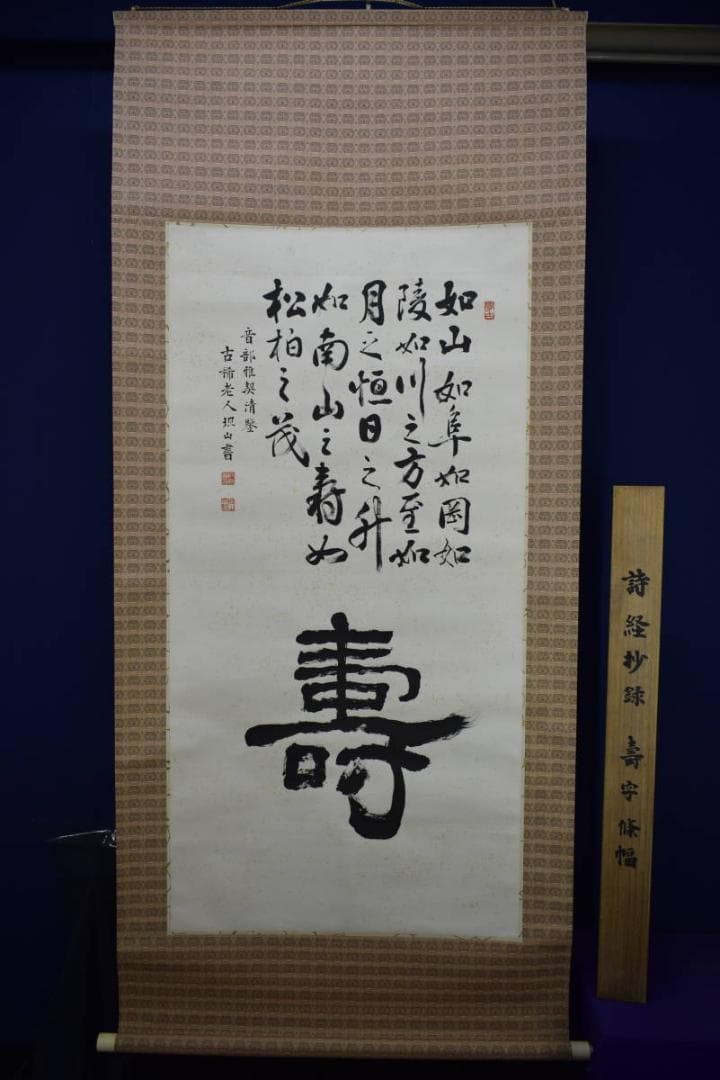 如山如阜如岡如
陵如川之方至如
月之恒日之升
如南山之壽如
松柏之茂
音部雅契清鑒
古稀老人山書
壽
詩経抄録 壽字條幅